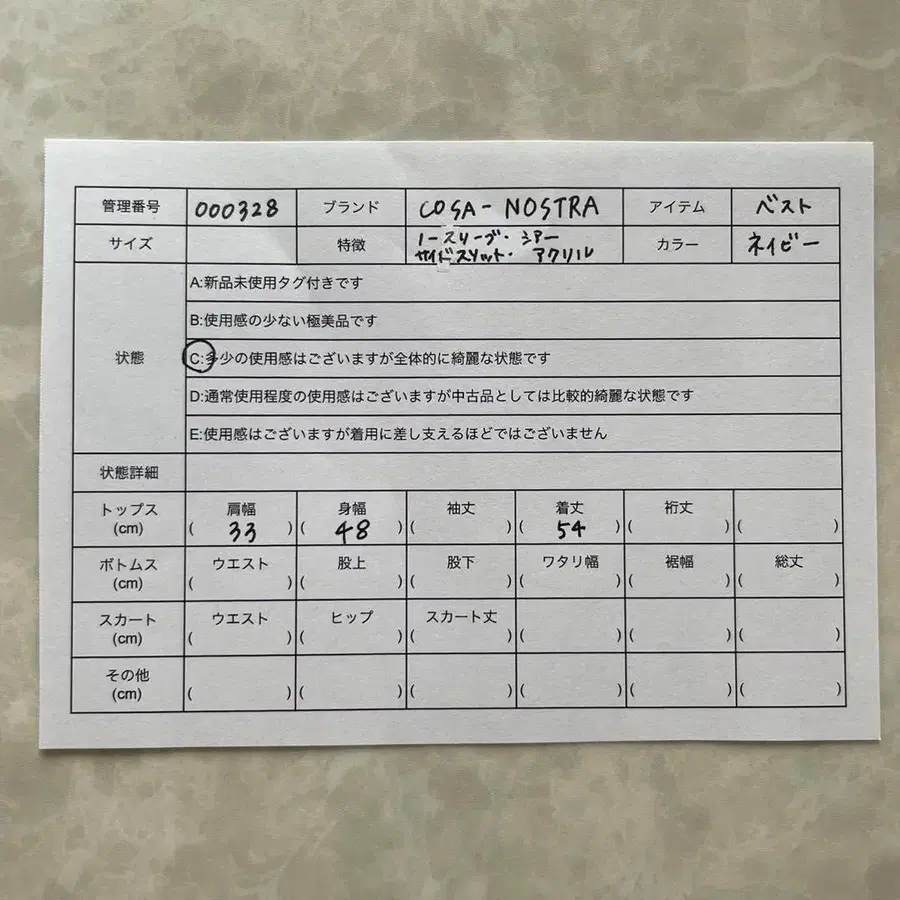 管理番号 000328 ブランド COSA-NOSTRA アイテム ベスト
サイズ 特徴 ノースリーブ・シアー サイドスリット・アクリル カラー ネイビー
A:新品未使用タグ付きです
B:使用感の少ない極美品です
状態 C:多少の使用感はございますが全体的に綺麗な状態です
D:通常使用程度の使用感はございますが中古品としては比較的綺麗な状態です
E:使用感はございますが着用に差し支えるほどではございません
状態詳細
トップス 肩幅 身幅 袖丈 着丈 裄丈
(cm) ( 33 ) ( 48 ) ( ) ( 54 ) ( ) ( )
ボトムス ウエスト 股上 股下 ワタリ幅 裾幅 総丈
(cm) ( ) ( ) ( ) ( ) ( ) ( )
スカート ウエスト ヒップ スカート丈
(cm) ( ) ( ) ( ) ( ) ( ) ( )
その他
(cm) ( ) ( ) ( ) ( ) ( ) ( )